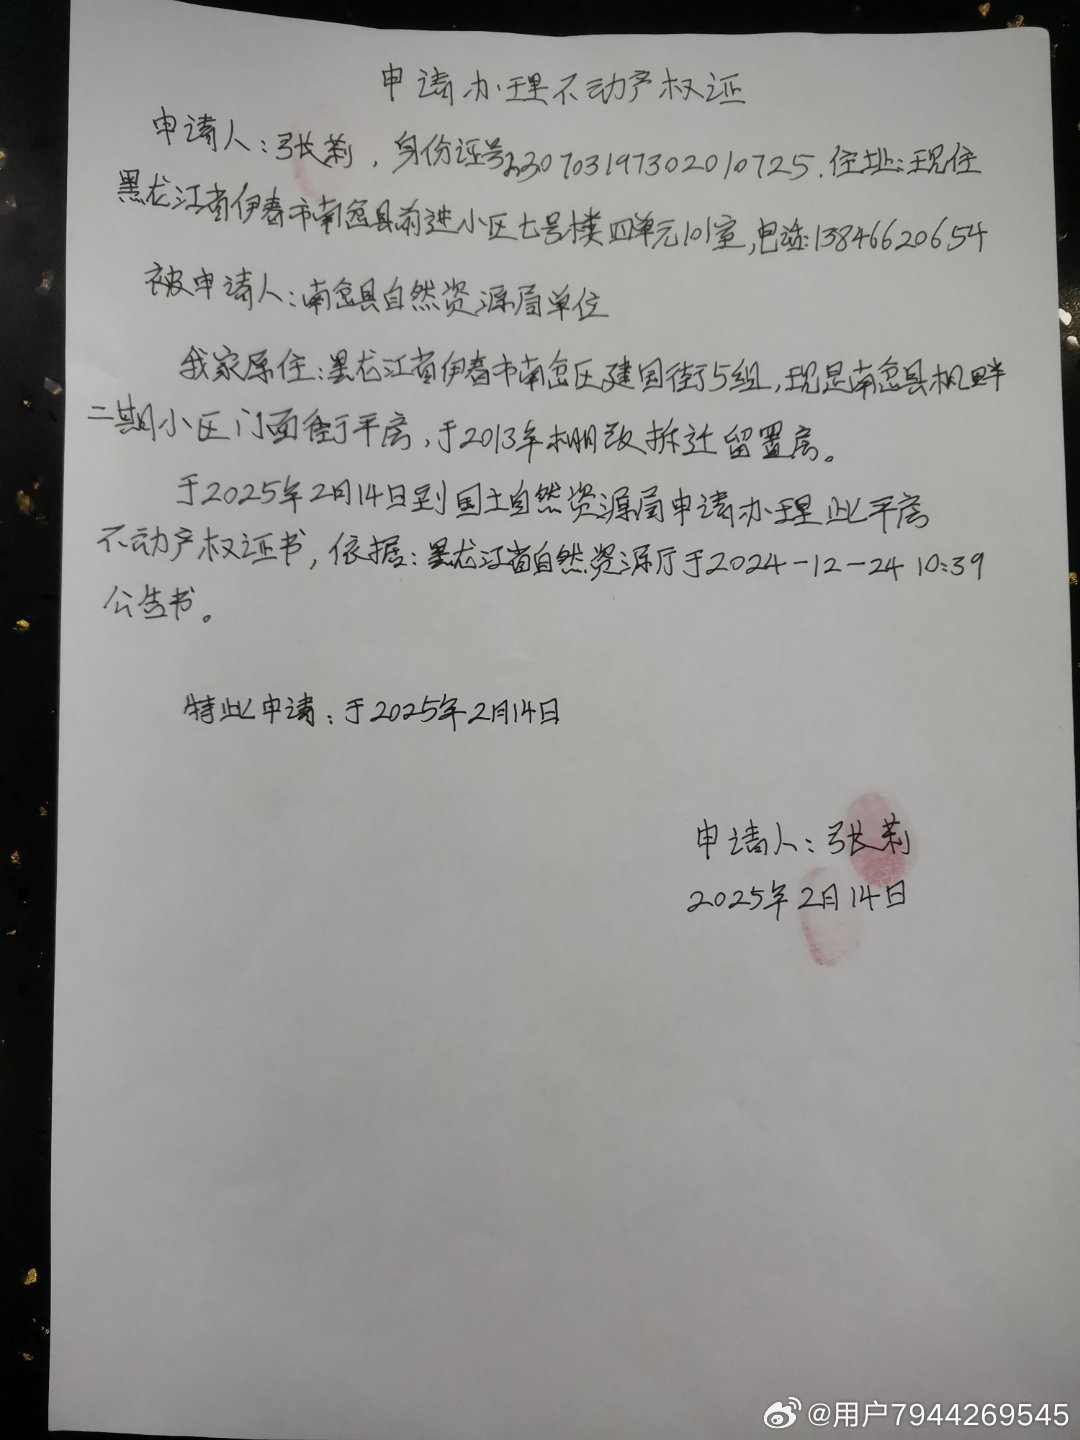 申请办理不动产权证
申请人：张莉，身份证号230703197302010725.住址：现住
黑龙江省伊春市南岔县前进小区七号楼四单元101室，电话：13846620654
被申请人：南岔县自然资源局单位
我家原住：黑龙江省伊春市南岔区建国街5组，现是南岔县枫畔
二期小区门面街平房，于2013年棚改拆迁留置房。
于2025年2月14日到国土自然资源局申请办理此平房
不动产权证书，依据：黑龙江省自然资源厅于2024-12-24 10:39
公告书。
特此申请：于2025年2月14日
申请人：张莉
2025年2月14日
@用户7944269545